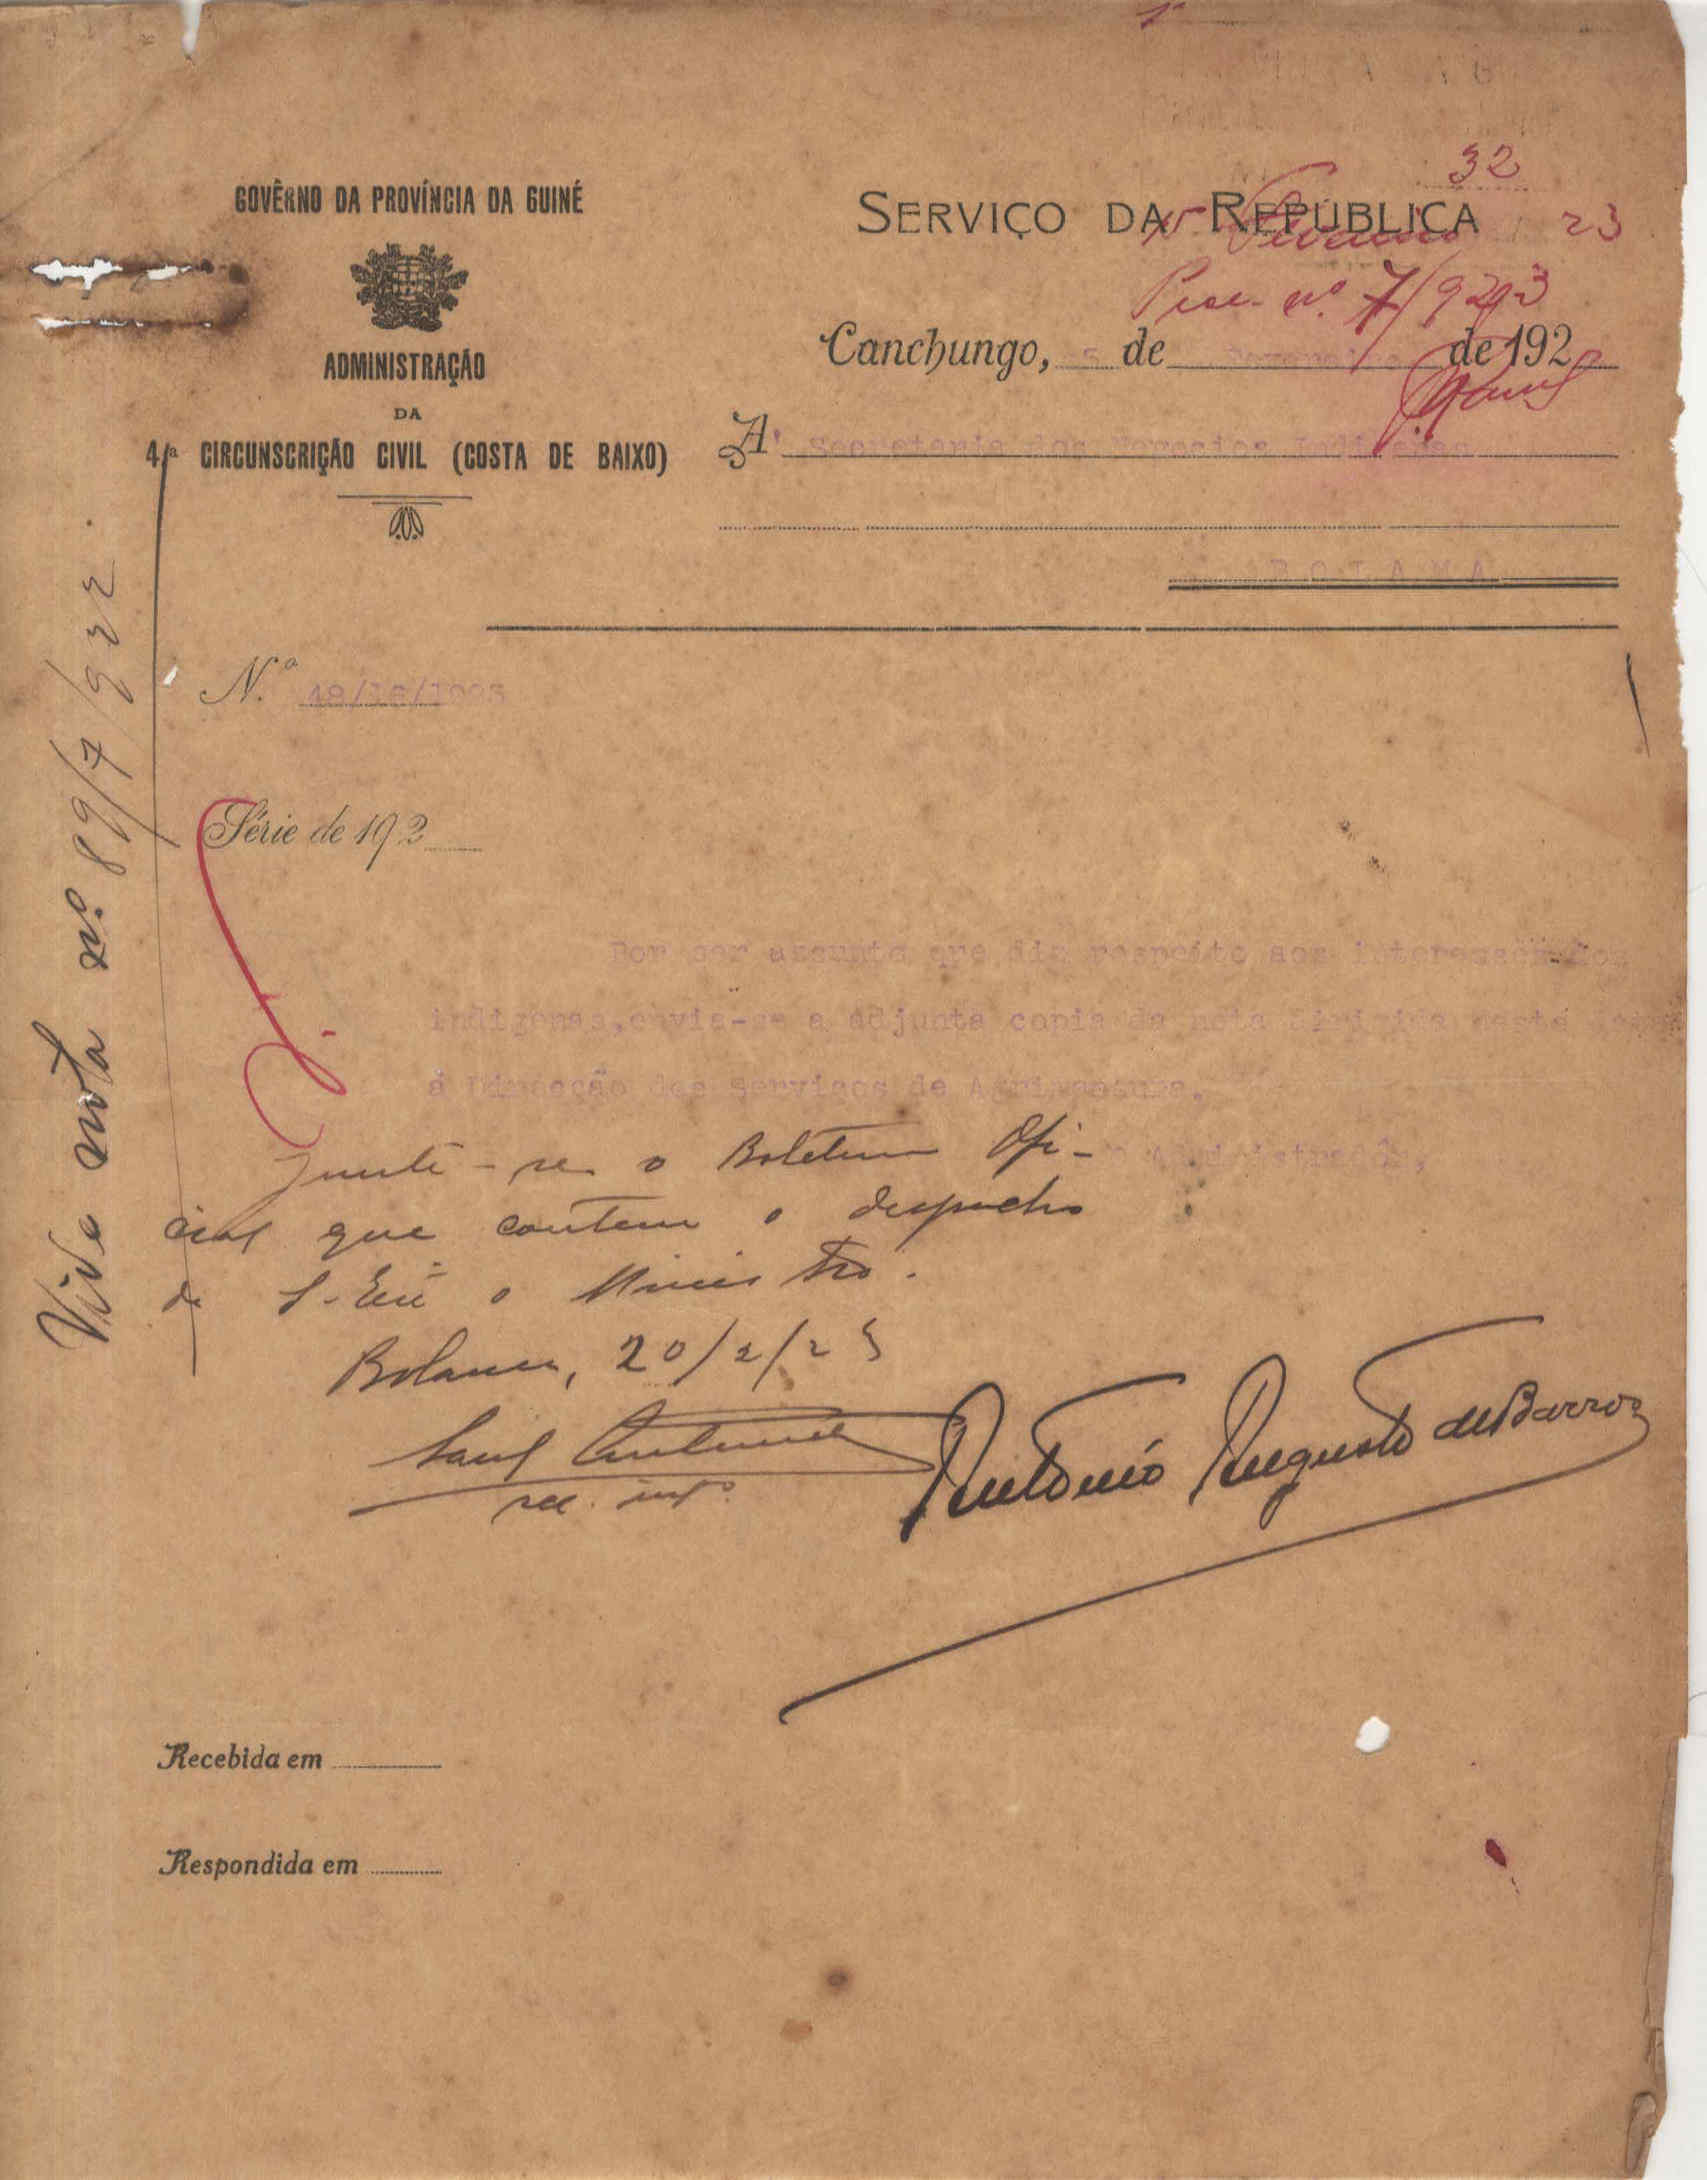 32
GOVÊRNO DA PROVÍNCIA DA GUINÉ
SERVIÇO DA REPÚBLICA
15 Fevereiro 23
Proc. nº 7/923
ADMINISTRAÇÃO
DA
4.ª CIRCUNSCRIÇÃO CIVIL (COSTA DE BAIXO)
Canchungo, 5 de de 192
A' Secretaria dos Negocios Indigenas
BOLAMA
N.º
Série de 192
Por ser assunto que diz respeito aos interesses dos
indigenas, envia-se a adjunta copia da nota dirigida nesta
á Direcção dos Serviços de Agricultura.
O Administrador,
Junte-se o Boletim Ofi-
cial que contem o despacho
de S. Exª o Ministro.
Bolama, 20/2/23
António Augusto de Barros
Vide nota nº. 89/7/922.
Recebida em
Respondida em